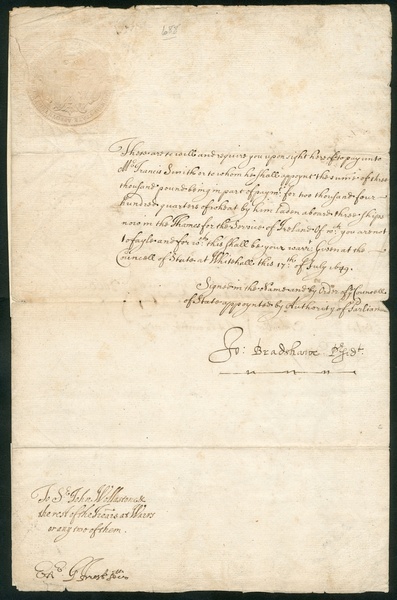 688
These are to will and require you upon sight hereof to pay unto
Mr Francis Smith or to whom he shall appoynt the summe of three
thousand pound being in part of paymt for two thousand four
hundred quarters of wheat by him laden aboard three ships
now in the Thames for the Service of Ireland Of wch you are not
to fayle and for wch this shall be your warrt Given at the
Councell of State at Whitehall this 17th of July 1649.
Signed in the Name and by Order of ye Councell
of State appoynted by Authority of Parliamt
Jo: Bradshawe Presidt
To Sr John Wollaston &
the rest of the Treärs at Warrs
or any two of them.